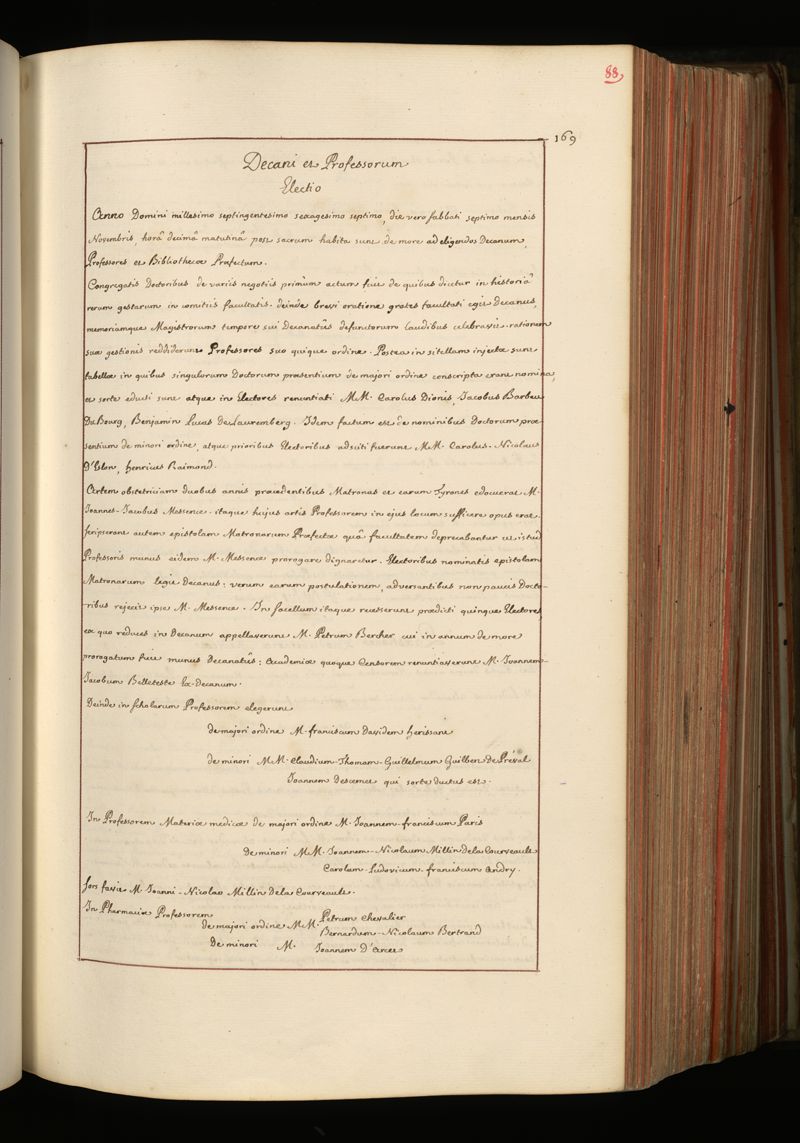 88
169
Decani et Professorum
Electio
Anno Domini millesimo septingentesimo sexagesimo septimo, die vero sabbati septimo mensis
Novembris, horâ decimâ matutinâ post sacrum habita sunt de more ad eligendos Decanum,
Professores et Bibliothecæ Præfectum.
Congregatis Doctoribus de variis negotiis primùm actum fuit de quibus dicetur in historiâ
rerum gestarum in comitiis facultatis. deinde brevi oratione grates facultati egit Decanus,
memoriamque Magistrorum tempore sui Decanatûs defunctorum laudibus celebravit. rationem
suæ gestionis reddiderunt Professores suo quique ordine. Postea in sitellam injectæ sunt
tabellæ in quibus singulorum Doctorum præsentium de majori ordine conscripta erant nomina,
et sorte educti sunt atque in Electores renuntiati M.M. Carolus Dionis, Jacobus Barbeu
DuBourg, Benjamin Lucas DeLauremberg. Idem factum est de nominibus Doctorum præ
sentium de minori ordine, atque prioribus Electoribus adsciti fuerunt M.M. Carolus-Nicolaus
D'Eslon, henricus Raimond.
Artem obstetriciam duobus annis præcedentibus Matronas et earum Tyrones edocuerat M.
Joannes-Jacobus Messence. itaque hujus artis Professorem in ejus locum sufficere opus erat.
scripserant autem epistolam Matronarum Præfectæ quâ facultatem deprecabantur ut istud
Professoris munus eidem M. Messence prorogare dignaretur. Electoribus nominatis epistolam
Matronarum legit Decanus: verum earum postulationem, adversantibus non paucis Docto-
-ribus rejecit ipse M. Messence. In sacellum itaque recesserunt prædicti quinque Electores
ex quo reduces in Decanum appellaverunt M. Petrum Bercher cui in annum de more
prorogatum fuit munus Decanatûs: Academiæ quoque Censorem renuntiaverunt M. Joannem-
Jacobum Belleteste Ex-Decanum.
Deinde in scholarum Professorem elegerunt
de majori ordine M. franciscum Davidem herissant
de minori M.M. Claudium-Thomam-Guillelmum Guilbert De Préval
Joannem Descemet qui sorte ductus est.
In Professorem Materiæ medicæ de majori ordine M. Joannem-franciscum Paris
de minori M.M. Joannem-Nicolaum Millin DelaCourveault
Carolum Ludovicum franciscum Andry.
sors favit M. Joanni-Nicolao Millin DelaCourveault.
In Pharmaciæ Professorem
de majori ordine M.M. Petrum Chevalier
Bernardum-Nicolaum Bertrand
De minori M. Joannem D'Arcet